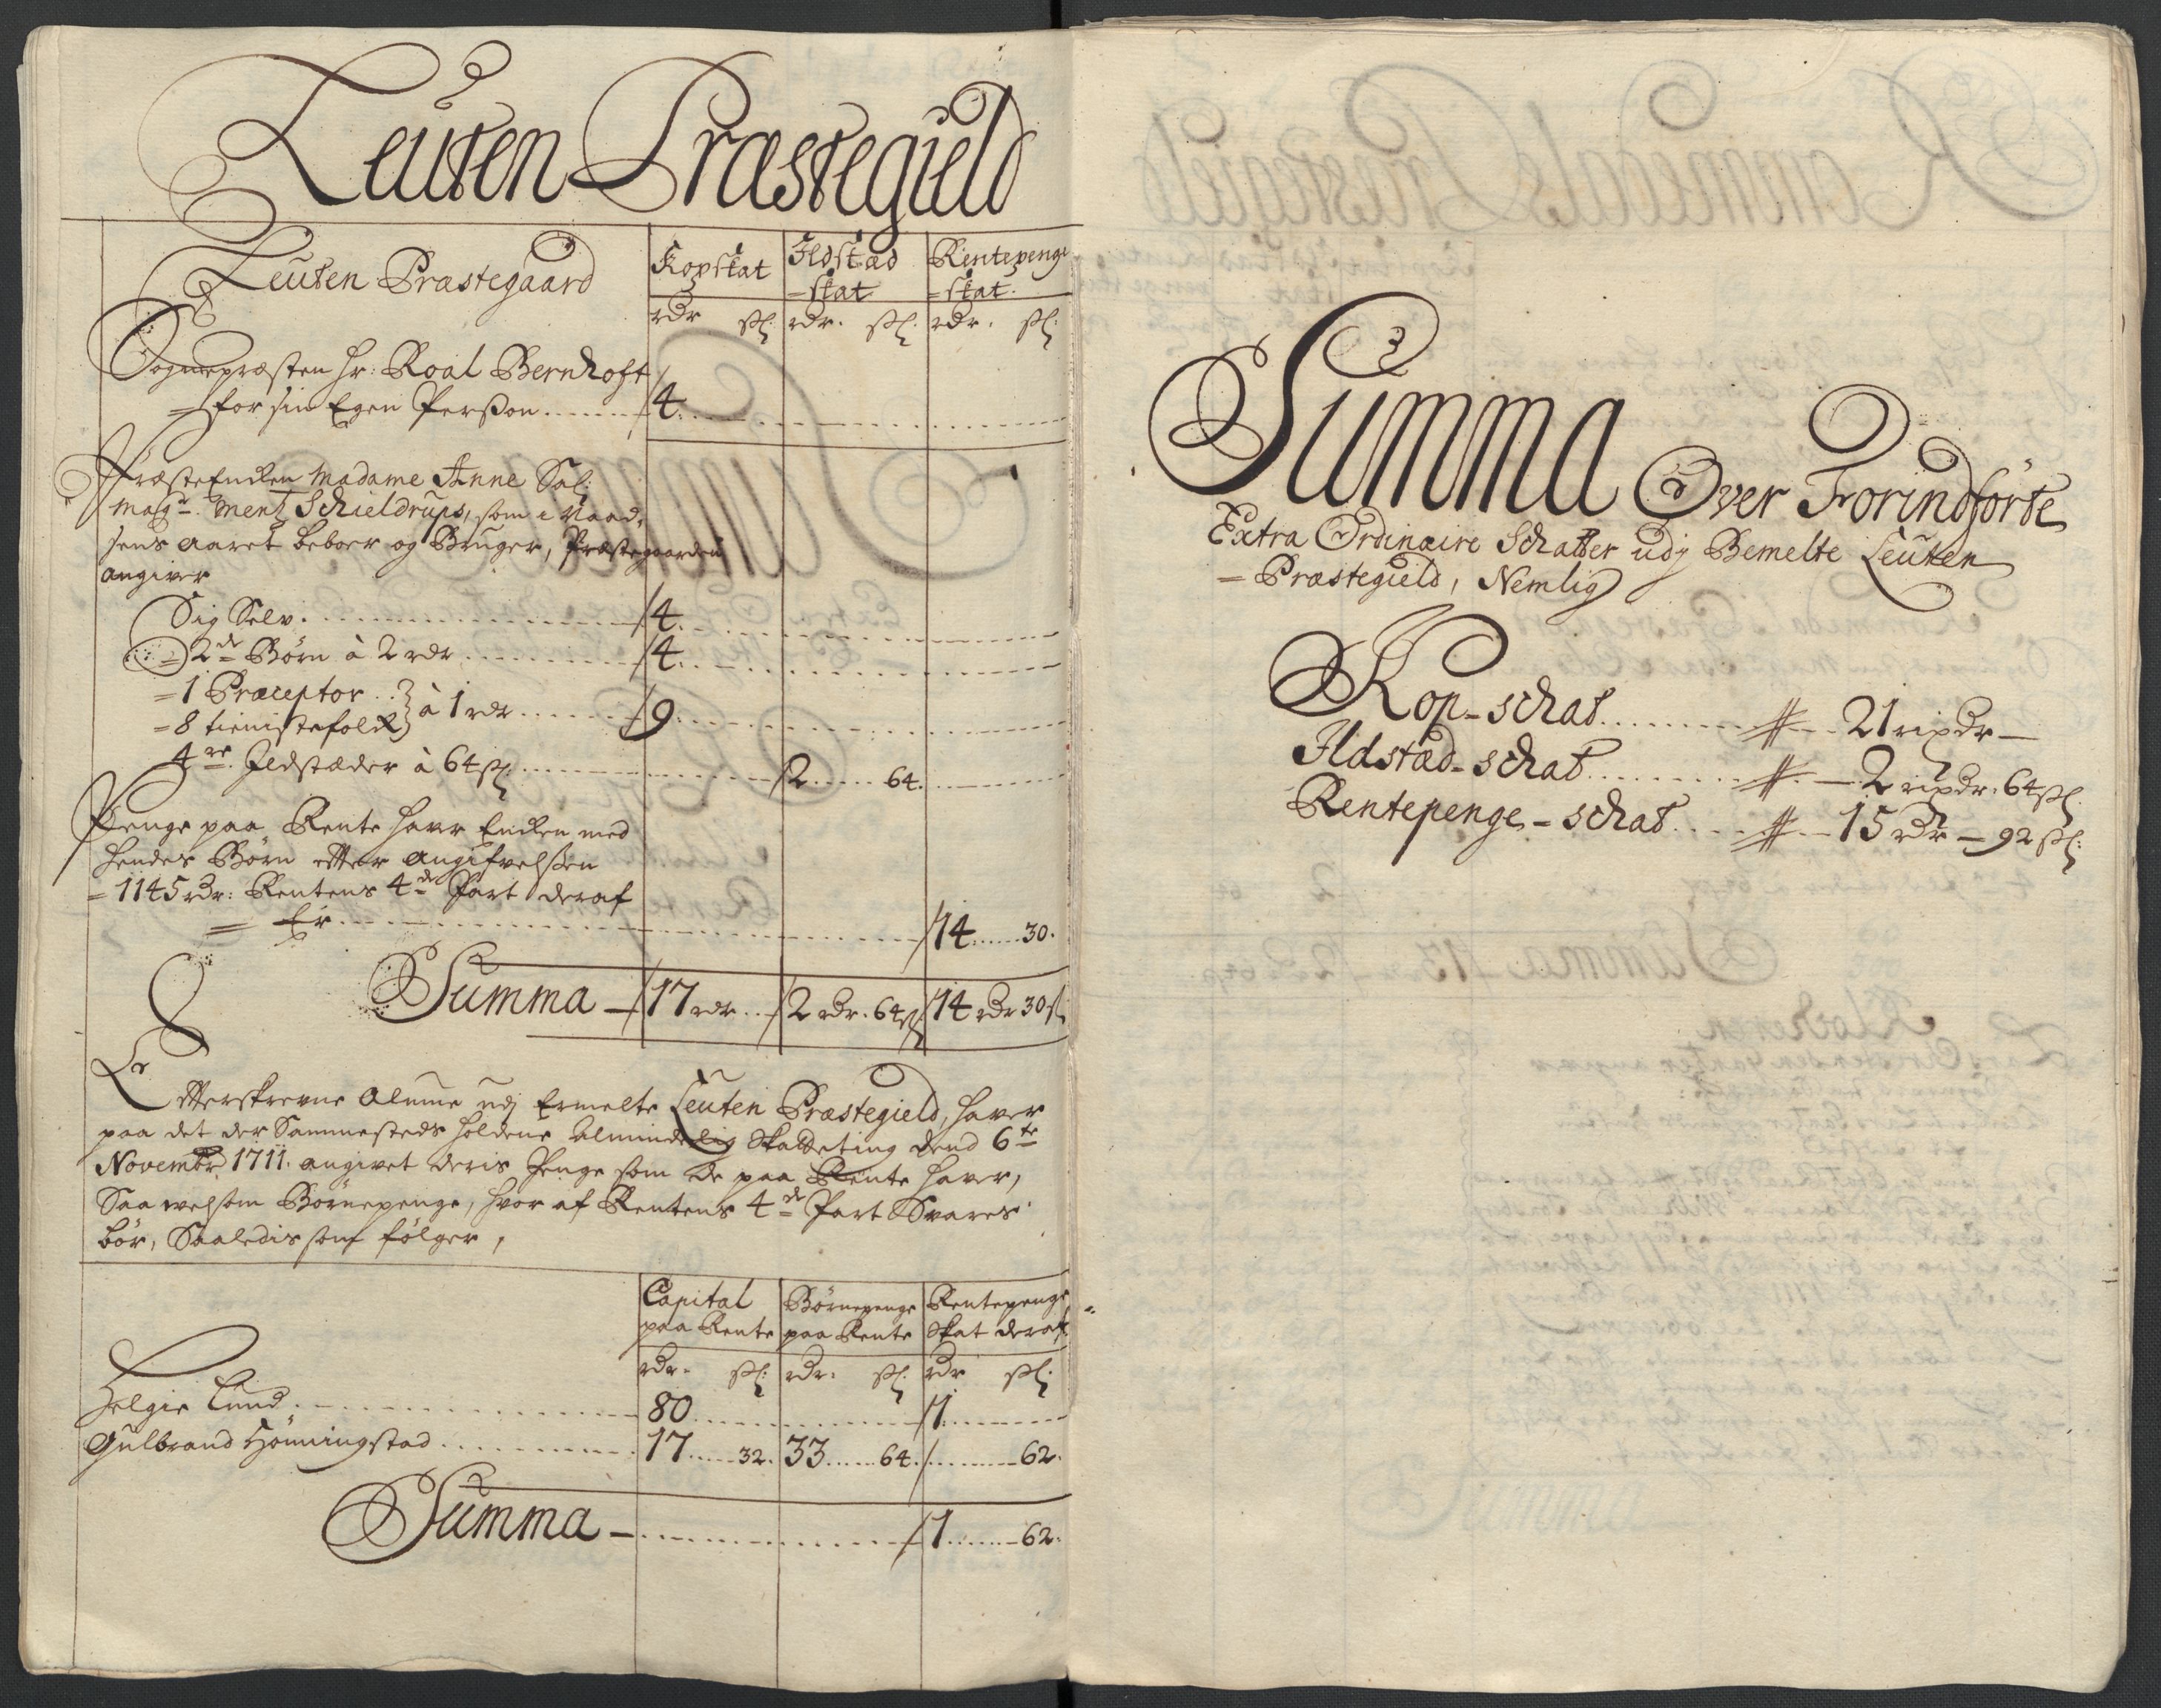 Leuten Præstegield
Leuten Præstegaard
Kopskat
Ildstæd
=skat
Rentepenge
=skat.
rdr sk: rdr. sk: rdr. sk:
Sognepræsten hr: Roal Bernhoft
= for sin Egen Person 4
Præste Encken Madame Anne Sal:
Magr. Ment Schieldrups, som e Naad,
sens Aaret beboer og Bruger, Præstegaarden
angiver
Sig Selv 4
= 2de Børn à 2 rdr 4
= 1 Præceptor
= 8 tienistefolck } à 1 rdr 9
4re. Ildstæder à 64 sk: 2 64.
Penge paa Rente haver Encken med
hendes Børn efter Angifvelsen
= 1145 rdr: Rentens 4de Part deraf
= Er 14 30.
Summa — 17 rdr 2 rdr. 64 sk 14 rdr 30 sk
Efterskrevne Almue udj Ermelte Leuten Præstegield, haver
paa det der Sammesteds holdene Almindelig Skatteting dend 6te
Novembr. 1711. angivet deris Penge som de paa Rente haver,
Saavelsom Børnepenge, hvor af Rentens 4de Part Svares
bør, Saaledis som følger,
Capital
paa Rente
Børnepenge
paa Rente
Rentepenge
Skat deraf
rdr. sk: rdr. sk: rdr sk:
Helgie Lund 80 1
Gulbrand Hønningstad 17 32. 33 64. 62.
Summa — 1 62.
Summa Over Forindførte
Extra Ordinaire Schatter udj Bemelte Leuten
= Præstegield, Nemlig
Kop-schat 21 rixdr —
Ildstæd-schat — 2 rixdr. 64 sk.
Rentepenge-schat — 15 rdr — 92 sk: